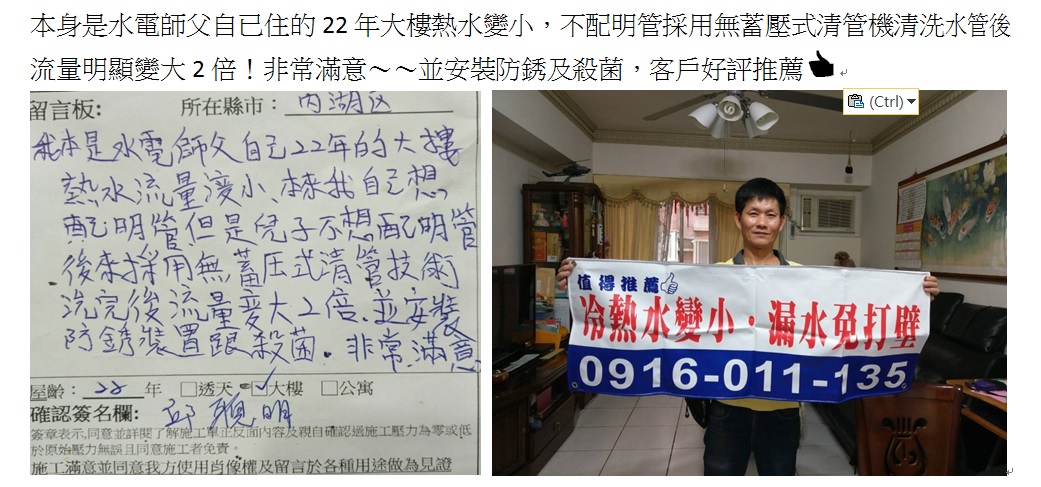 本身是水電師父自已住的 22 年大樓熱水變小，不配明管採用無蓄壓式清管機清洗水管後
流量明顯變大 2 倍！非常滿意～～並安裝防銹及殺菌，客戶好評推薦
(Ctrl)
留言板: 所在縣市： 內湖区
我本是水電師父自己22年的大樓
熱水流量淒小、本來我自己想
配明管但是兒子不想配明管
後來採用無蓄压式清管技術
洗完後流量变大2倍.並安裝
防銹裝置跟殺菌.非常滿意
屋齡： 22 年 □透天 ☑大樓 □公寓
確認簽名欄: 邱聰明
簽章表示,同意並詳閱了解施工單正反面內容及親自確認過施工壓力為零或低
於原始壓力無誤且同意施工者免責。
施工滿意並同意我方使用肖像權及留言於各種用途做為見證
值得推薦
冷熱水變小・漏水免打壁
0916-011-135